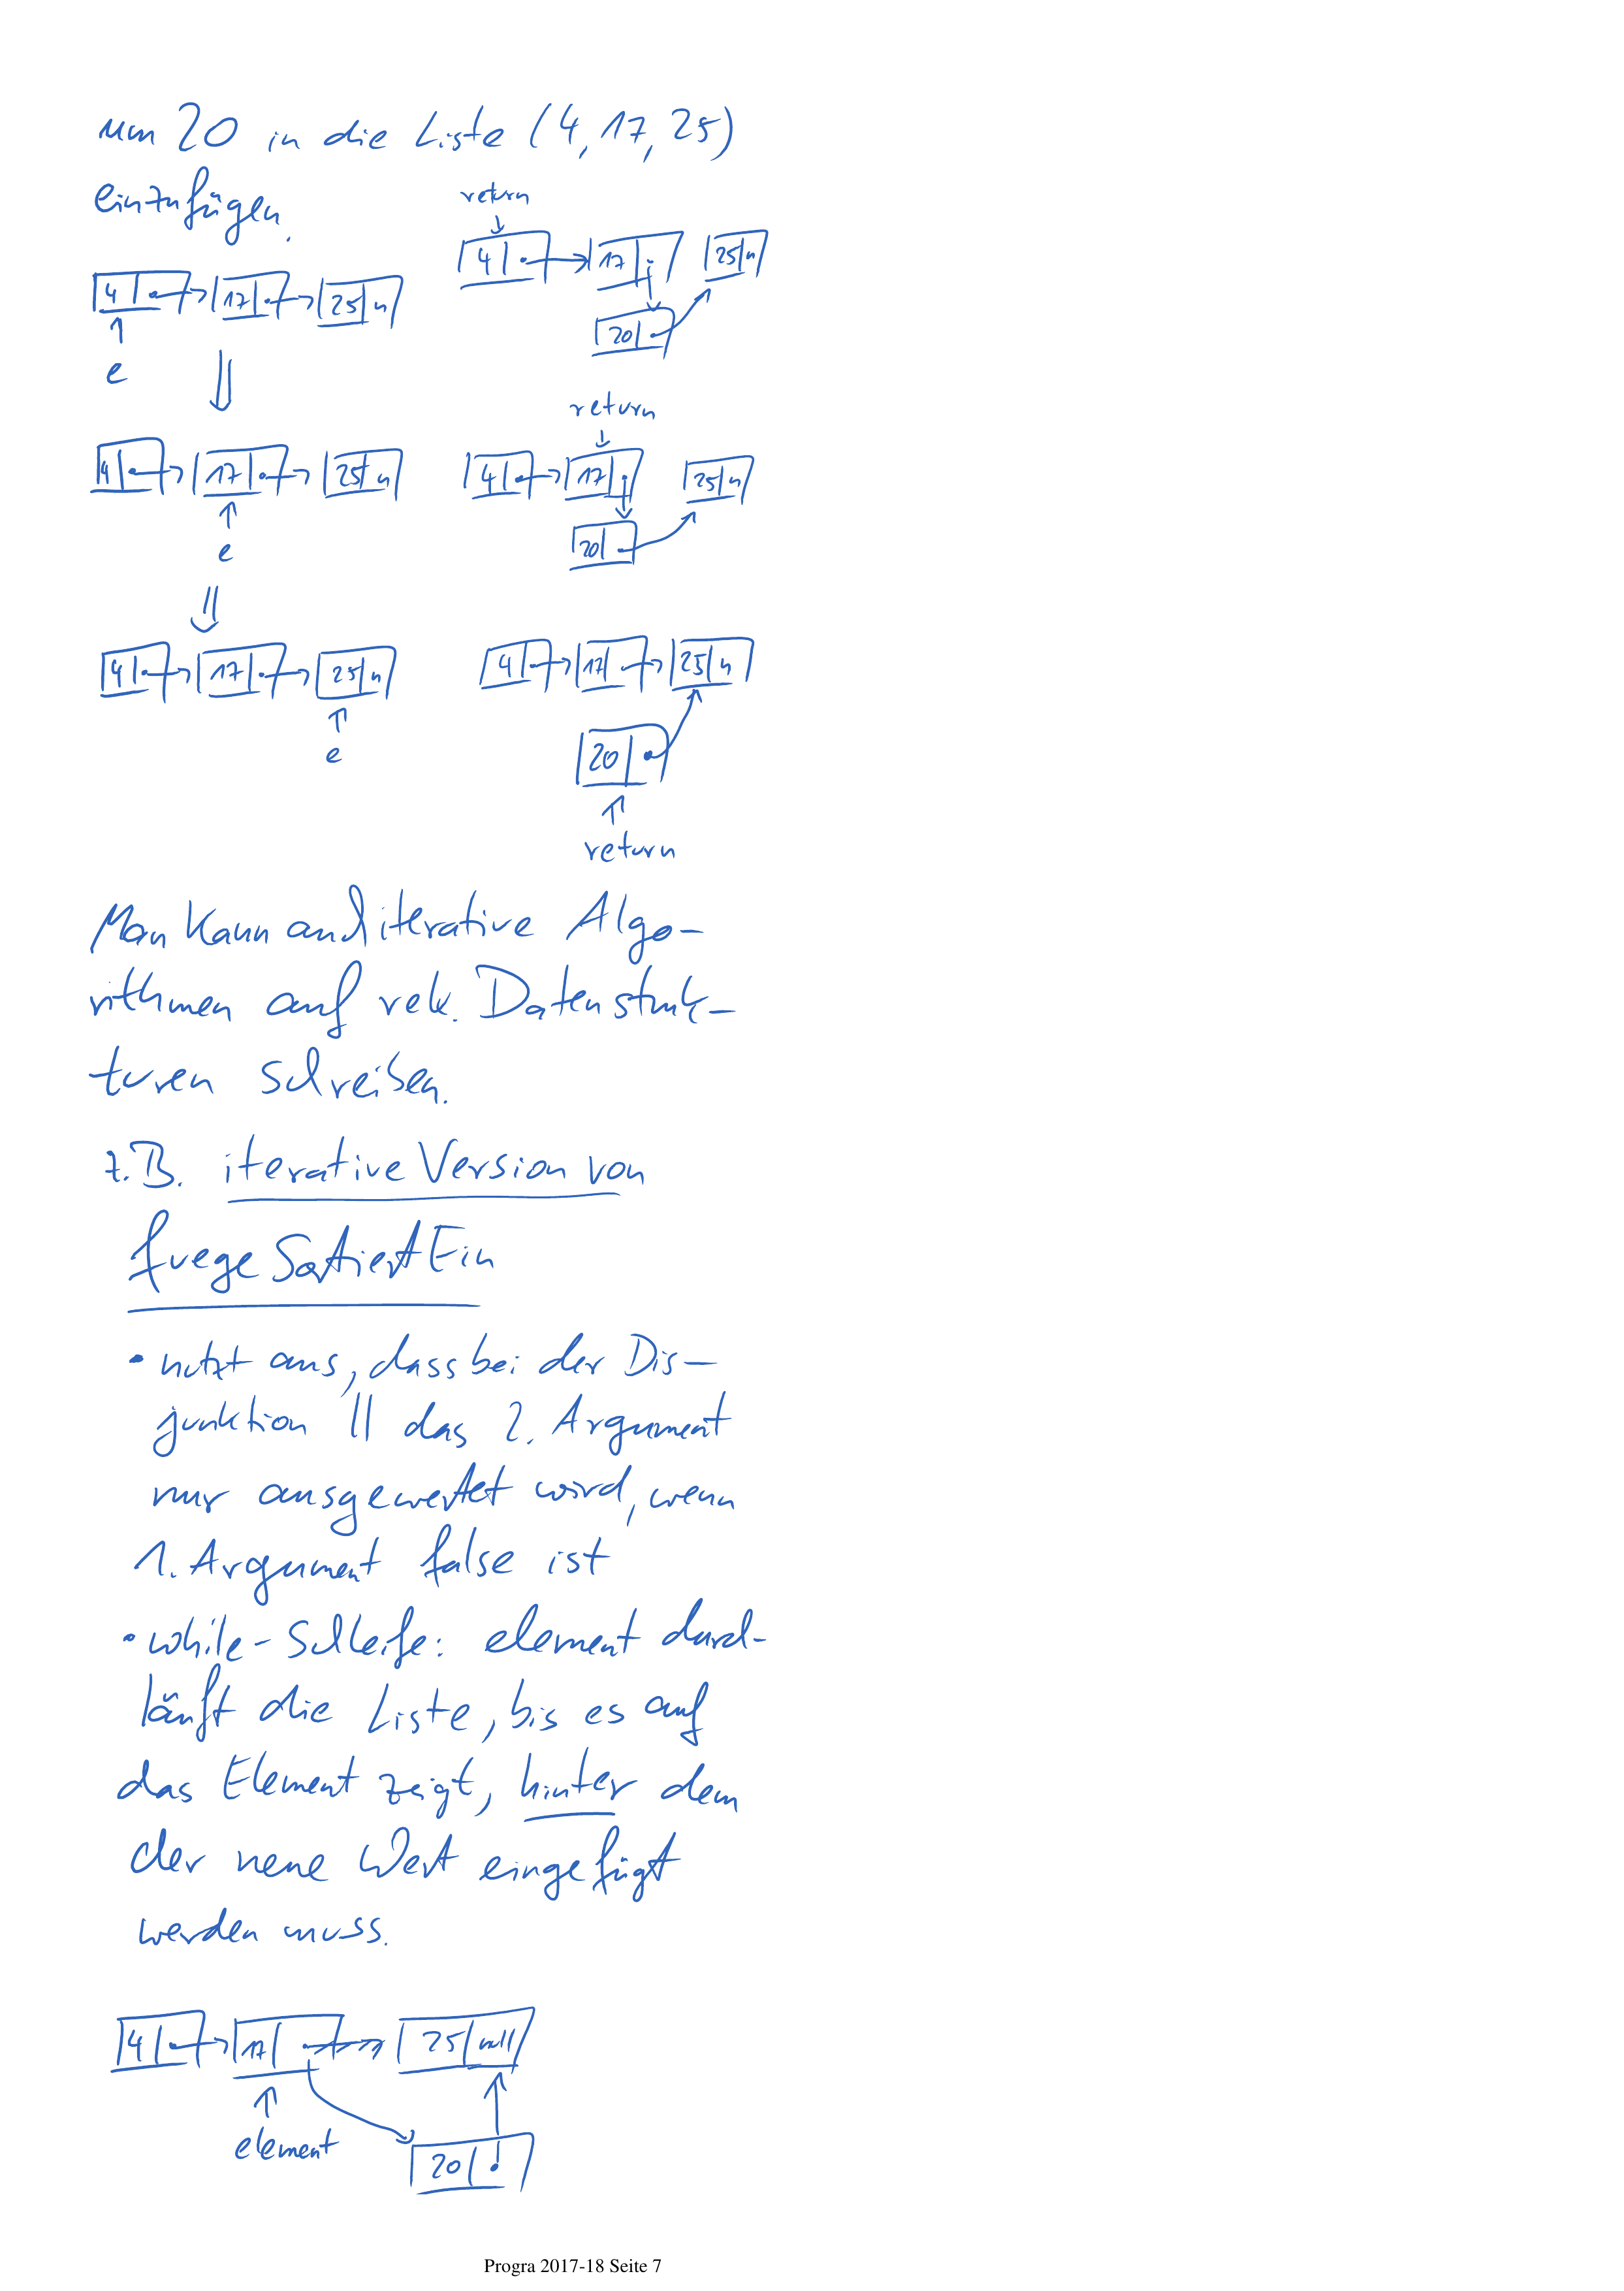 um 20 in die Liste (4, 17, 25)
einzufügen.
return
4 17 25 n
4 17 25 n
20
e
return
4 17 25 n
4 17 25 n
20
e
4 17 25 n
4 17 25 n
20
e
return
Man kann auch iterative Algo-
rithmen auf rek. Datenstruk-
turen schreiben.
z.B. iterative Version von
fuegeSortiertEin
• nutzt aus, dass bei der Dis-
junktion || das 2. Argument
nur ausgewertet wird, wenn
1. Argument false ist
• while-Schleife: element durch-
läuft die Liste, bis es auf
das Element zeigt, hinter dem
der neue Wert eingefügt
werden muss.
4 17 25 null
element
20
Progra 2017-18 Seite 7